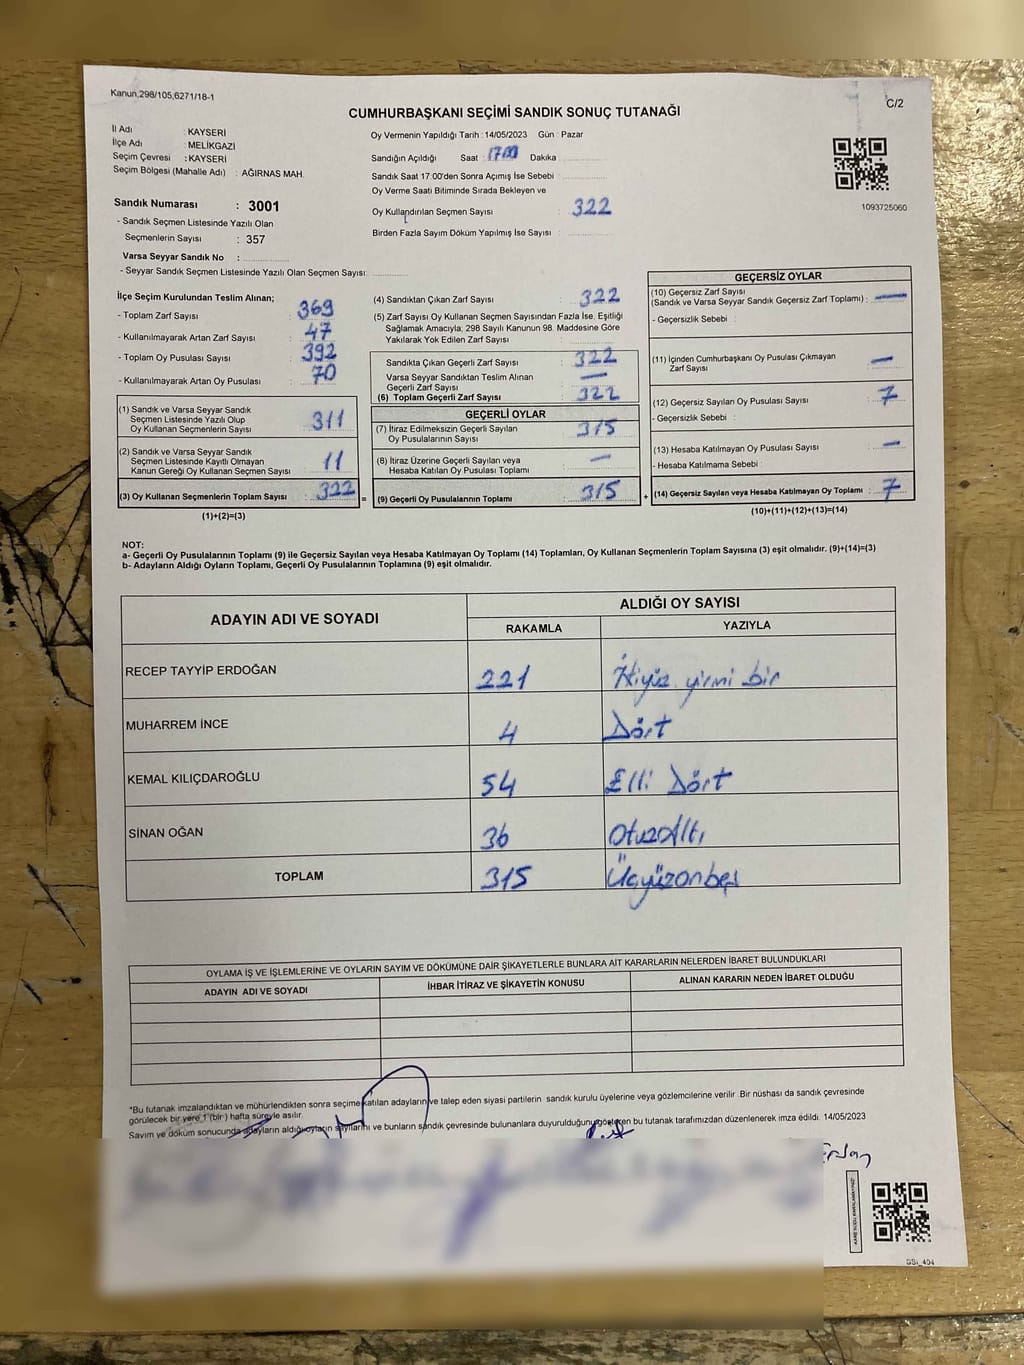 Kanun.298/105,6271/18-1
C/2
CUMHURBAŞKANI SEÇİMİ SANDIK SONUÇ TUTANAĞI
İl Adı : KAYSERİ
İlçe Adı : MELİKGAZİ
Seçim Çevresi : KAYSERİ
Seçim Bölgesi (Mahalle Adı) : AĞIRNAS MAH.
Sandık Numarası : 3001
- Sandık Seçmen Listesinde Yazılı Olan
Seçmenlerin Sayısı : 357
Varsa Seyyar Sandık No :
- Seyyar Sandık Seçmen Listesinde Yazılı Olan Seçmen Sayısı:
Oy Vermenin Yapıldığı Tarih : 14/05/2023 Gün : Pazar
Sandığın Açıldığı Saat : 17:00 Dakika
Sandık Saat 17:00'den Sonra Açımış İse Sebebi :
Oy Verme Saati Bitiminde Sırada Bekleyen ve
Oy Kullandırılan Seçmen Sayısı : 322
Birden Fazla Sayım Döküm Yapılmış İse Sayısı :
1093725060
İlçe Seçim Kurulundan Teslim Alınan;
- Toplam Zarf Sayısı : 369
- Kullanılmayarak Artan Zarf Sayısı : 47
- Toplam Oy Pusulası Sayısı : 392
- Kullanılmayarak Artan Oy Pusulası : 70
(1) Sandık ve Varsa Seyyar Sandık
Seçmen Listesinde Yazılı Olup
Oy Kullanan Seçmenlerin Sayısı : 311
(2) Sandık ve Varsa Seyyar Sandık
Seçmen Listesinde Kayıtlı Olmayan
Kanun Gereği Oy Kullanan Seçmen Sayısı : 11
(3) Oy Kullanan Seçmenlerin Toplam Sayısı : 322 =
(1)+(2)=(3)
(4) Sandıktan Çıkan Zarf Sayısı : 322
(5) Zarf Sayısı Oy Kullanan Seçmen Sayısından Fazla İse, Eşitliği
Sağlamak Amacıyla; 298 Sayılı Kanunun 98. Maddesine Göre
Yakılarak Yok Edilen Zarf Sayısı :
Sandıkta Çıkan Geçerli Zarf Sayısı : 322
Varsa Seyyar Sandıktan Teslim Alınan
Geçerli Zarf Sayısı : —
(6) Toplam Geçerli Zarf Sayısı : 322
GEÇERLİ OYLAR
(7) İtiraz Edilmeksizin Geçerli Sayılan
Oy Pusulalarının Sayısı : 315
(8) İtiraz Üzerine Geçerli Sayılan veya
Hesaba Katılan Oy Pusulası Toplamı : —
(9) Geçerli Oy Pusulalarının Toplamı : 315 +
GEÇERSİZ OYLAR
(10) Geçersiz Zarf Sayısı
(Sandık ve Varsa Seyyar Sandık Geçersiz Zarf Toplamı) : —
- Geçersizlik Sebebi :
(11) İçinden Cumhurbaşkanı Oy Pusulası Çıkmayan
Zarf Sayısı : —
(12) Geçersiz Sayılan Oy Pusulası Sayısı : 7
- Geçersizlik Sebebi :
(13) Hesaba Katılmayan Oy Pusulası Sayısı : —
- Hesaba Katılmama Sebebi :
(14) Geçersiz Sayılan veya Hesaba Katılmayan Oy Toplamı : 7
(10)+(11)+(12)+(13)=(14)
NOT:
a- Geçerli Oy Pusulalarının Toplamı (9) ile Geçersiz Sayılan veya Hesaba Katılmayan Oy Toplamı (14) Toplamları, Oy Kullanan Seçmenlerin Toplam Sayısına (3) eşit olmalıdır. (9)+(14)=(3)
b- Adayların Aldığı Oyların Toplamı, Geçerli Oy Pusulalarının Toplamına (9) eşit olmalıdır.
ADAYIN ADI VE SOYADI ALDIĞI OY SAYISI
RAKAMLA YAZIYLA
RECEP TAYYİP ERDOĞAN 221 İkiyüz yirmi bir
MUHARREM İNCE 4 Dört
KEMAL KILIÇDAROĞLU 54 Elli Dört
SİNAN OĞAN 36 OtuzAltı
TOPLAM 315 Üçyüzonbeş
OYLAMA İŞ VE İŞLEMLERİNE VE OYLARIN SAYIM VE DÖKÜMÜNE DAİR ŞİKAYETLERLE BUNLARA AİT KARARLARIN NELERDEN İBARET BULUNDUKLARI
ADAYIN ADI VE SOYADI İHBAR İTİRAZ VE ŞİKAYETİN KONUSU ALINAN KARARIN NEDEN İBARET OLDUĞU
*Bu tutanak imzalandıktan ve mühürlendikten sonra seçime katılan adayların ve talep eden siyasi partilerin sandık kurulu üyelerine ve gözlemcilerine verilir. Bir nüshası da sandık çevresinde
görülecek bir yere 1 (bir) hafta süreyle asılır.
Sayım ve döküm sonucunda adayların aldığı oyların sayılarını ve bunların sandık çevresinde bulunanlara duyurulduğunu gösteren bu tutanak tarafımızdan düzenlenerek imza edildi. 14/05/2023